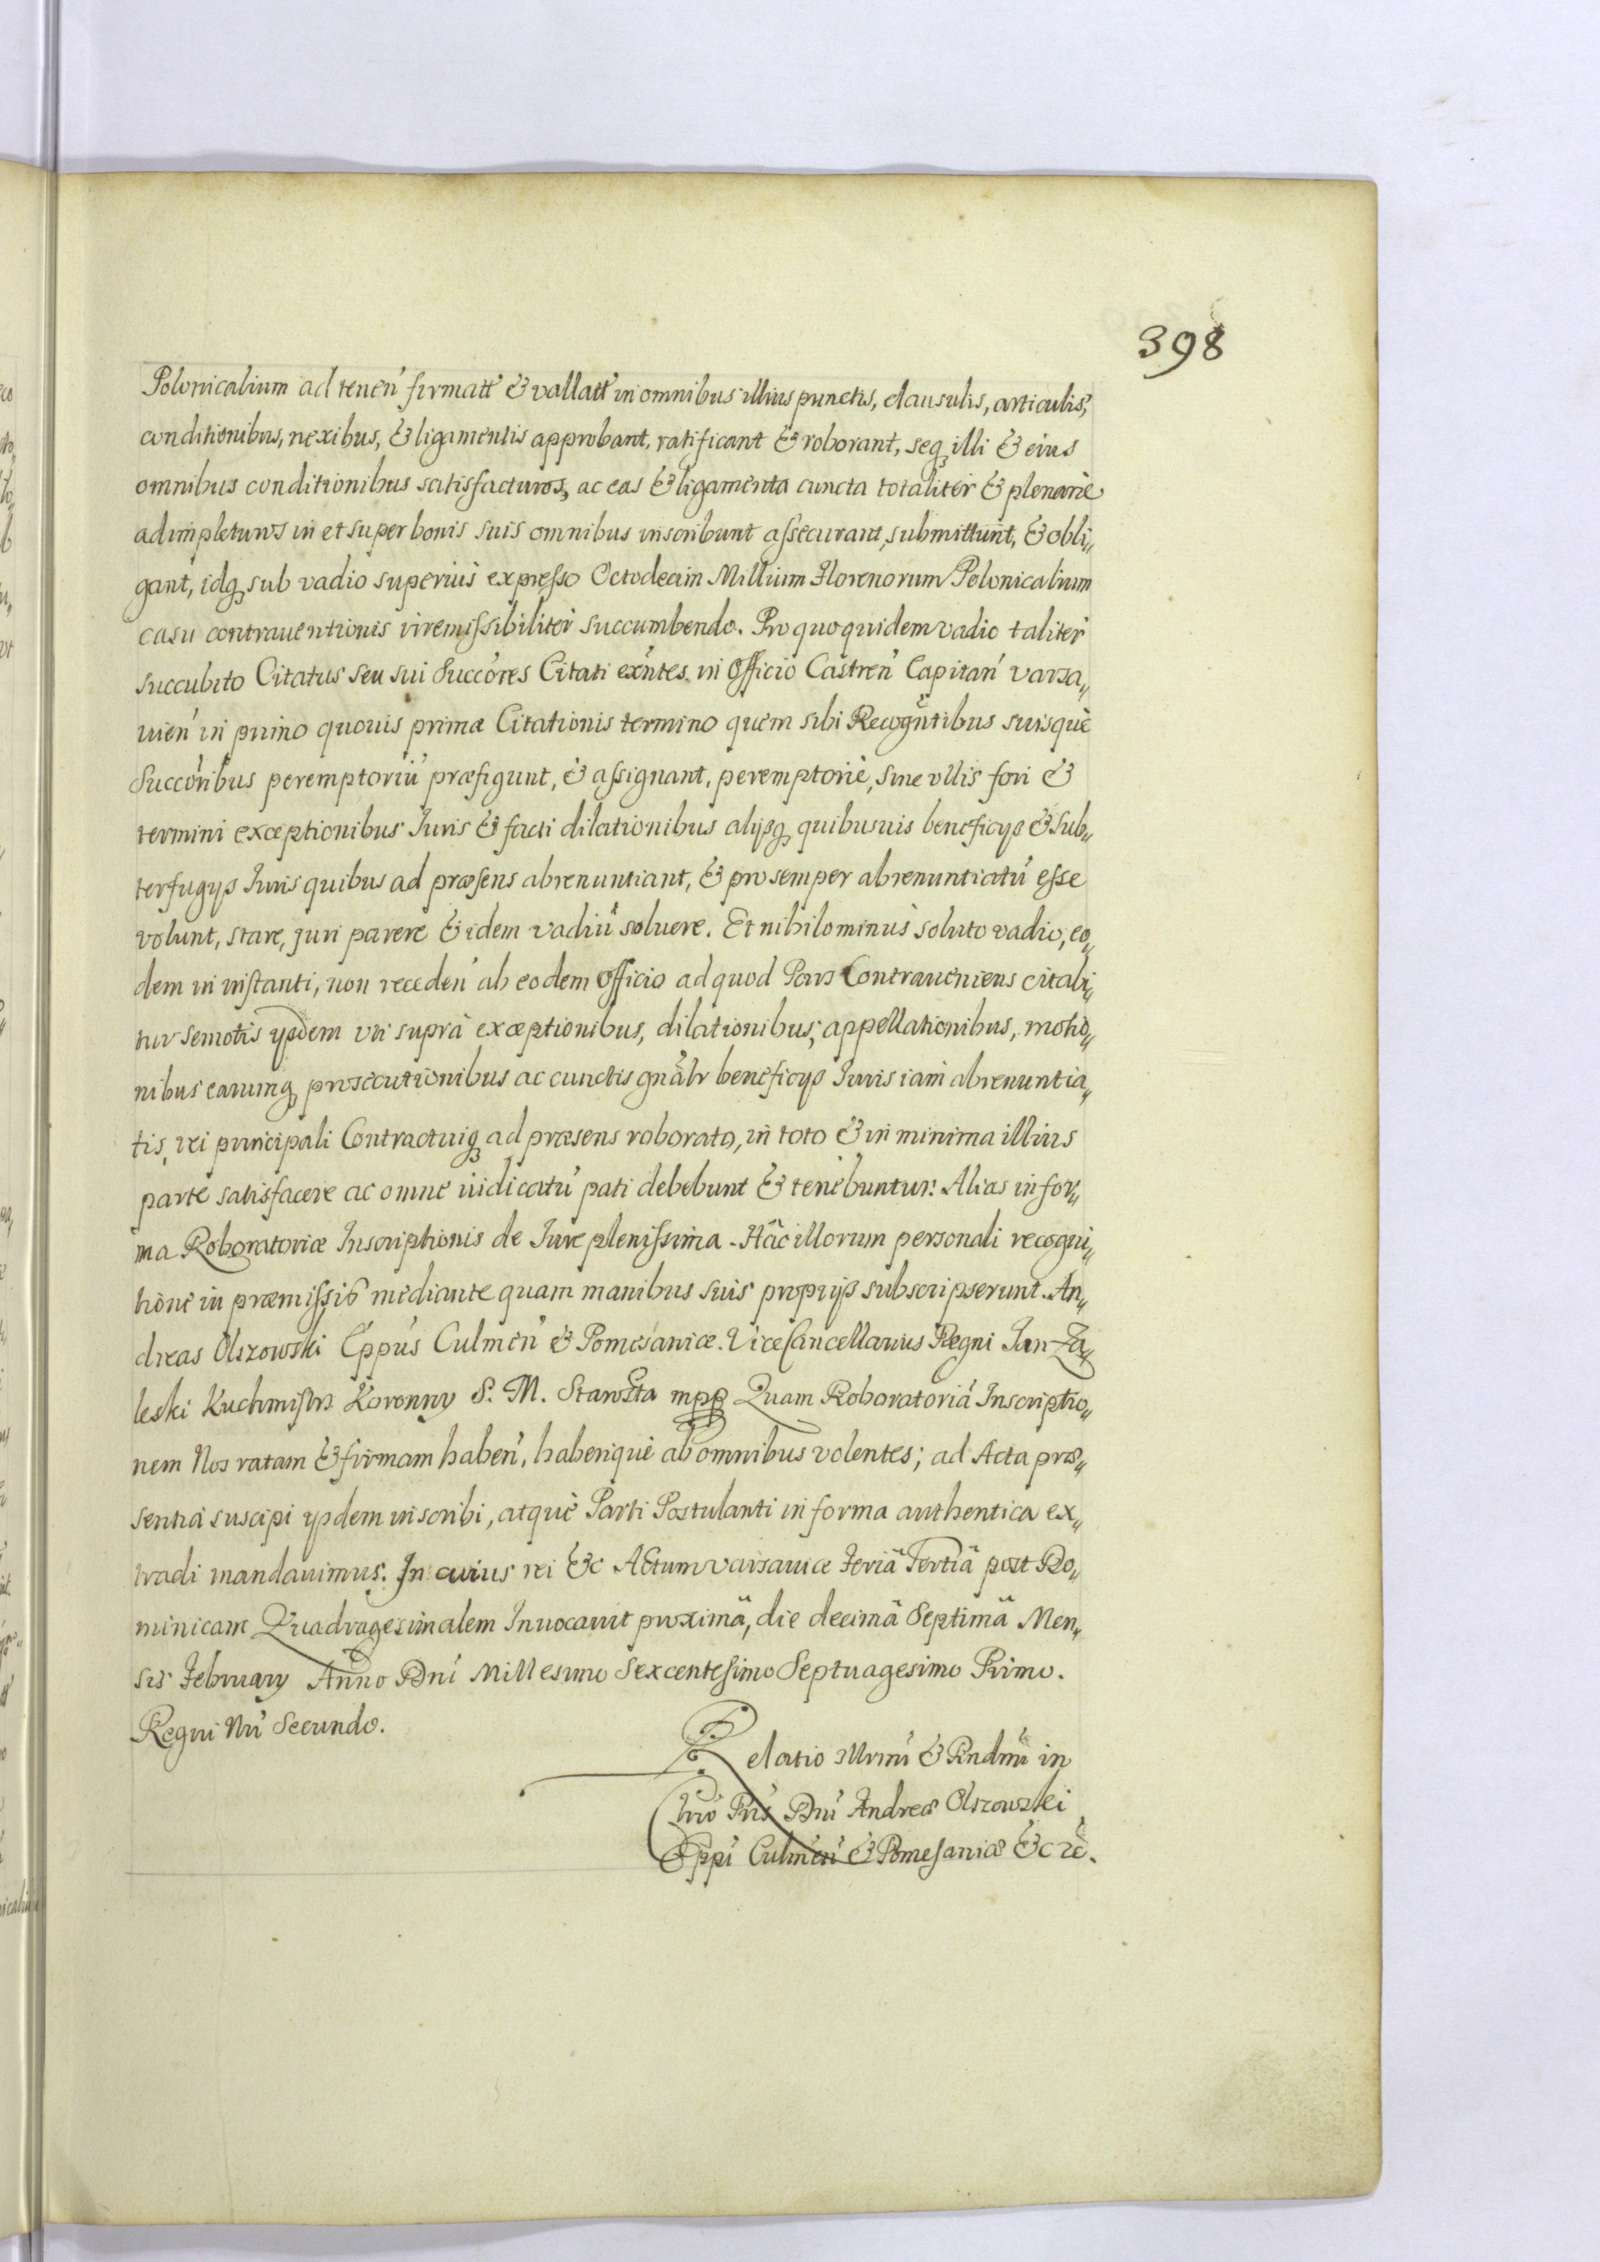 398
Polonicalium ad tenen' firmatt' & vallatt' in omnibus illius punctis, clausulis, articulis,
conditionibus, nexibus, & ligamentis approbant, ratificant & roborant, seq illi & eius
omnibus conditionibus satisfacturos, ac eas & ligamenta cuncta totaliter & plenarie
adimpleturos in et super bonis suis omnibus inscribunt assecurant, submittunt, & obli„
gant, idq sub vadio superius expresso Octodecim Millium Florenorum Polonicalium
casu contrauentionis irremissibiliter succumbendo. Pro quo quidem vadio taliter
succubito Citatus seu sui Succōres Citati exn̄tes in Officio Castren' Capitan' Varsa„
uien' in primo quouis primæ Citationis termino quem sibi Recogn̄tibus suisque
Succōribus peremptoriū præfigunt, & assignant, peremptoriè, sine vllis fori &
termini exceptionibus Iuris & facti dilationibus alijsq quibusuis beneficijs & sub„
terfugijs Iuris quibus ad præsens abrenuntiant, & pro semper abrenunticatū esse
volunt, stare, juri parere & idem vadiū soluere. Et nihilominus soluto vadio, eo„
dem in instanti, non receden' ab eodem Officio ad quod Pars Contraueniens citabi„
tur semotis ijsdem vti suprà exceptionibus, dilationibus, appellationibus, motio„
nibus earumq prosecutionibus ac cunctis gnālr beneficijs Iuris iam abrenuntia„
tis, rei principali Contractuiq ad præsens roborato, in toto & in minima illius
parte satisfacere ac omne iudicatū pati debebunt & tenebuntur. Alias in for„
ma Roboratoriæ Inscriptionis de Iure plenissima. Hâc illorum personali recogni„
tione in præmissis mediante quam manibus suis proprijs subscripserunt. An„
dreas Olszowski Eppūs Culmen' & Pomesaniæ. ViceCancellarius Regni Jan Za„
leski Kuchmistrz Koronny S. M. Starosta mpp Quam Roboratoriā Inscriptio„
nem Nos ratam & firmam haben', haberique ab omnibus volentes; ad Acta præ„
sentiā suscipi ijsdem inscribi, atque Parti Postulanti in forma authentica ex„
tradi mandauimus. In cuius rei &c Actum Varsauiæ Feriâ Tertiâ post Do„
minicam Quadragesimalem Inuocauit proximâ, die decimâ Septimâ Men„
sis February Anno Dnī Millesimo Sexcentesimo Septuagesimo Primo.
Regni Nrī Secundo.
Relatio Illrmī & Rndmī in
Chrō Prīs Dnī Andreæ Olszowski
Eppī Culmen' & Pomesaniæ &c rē.